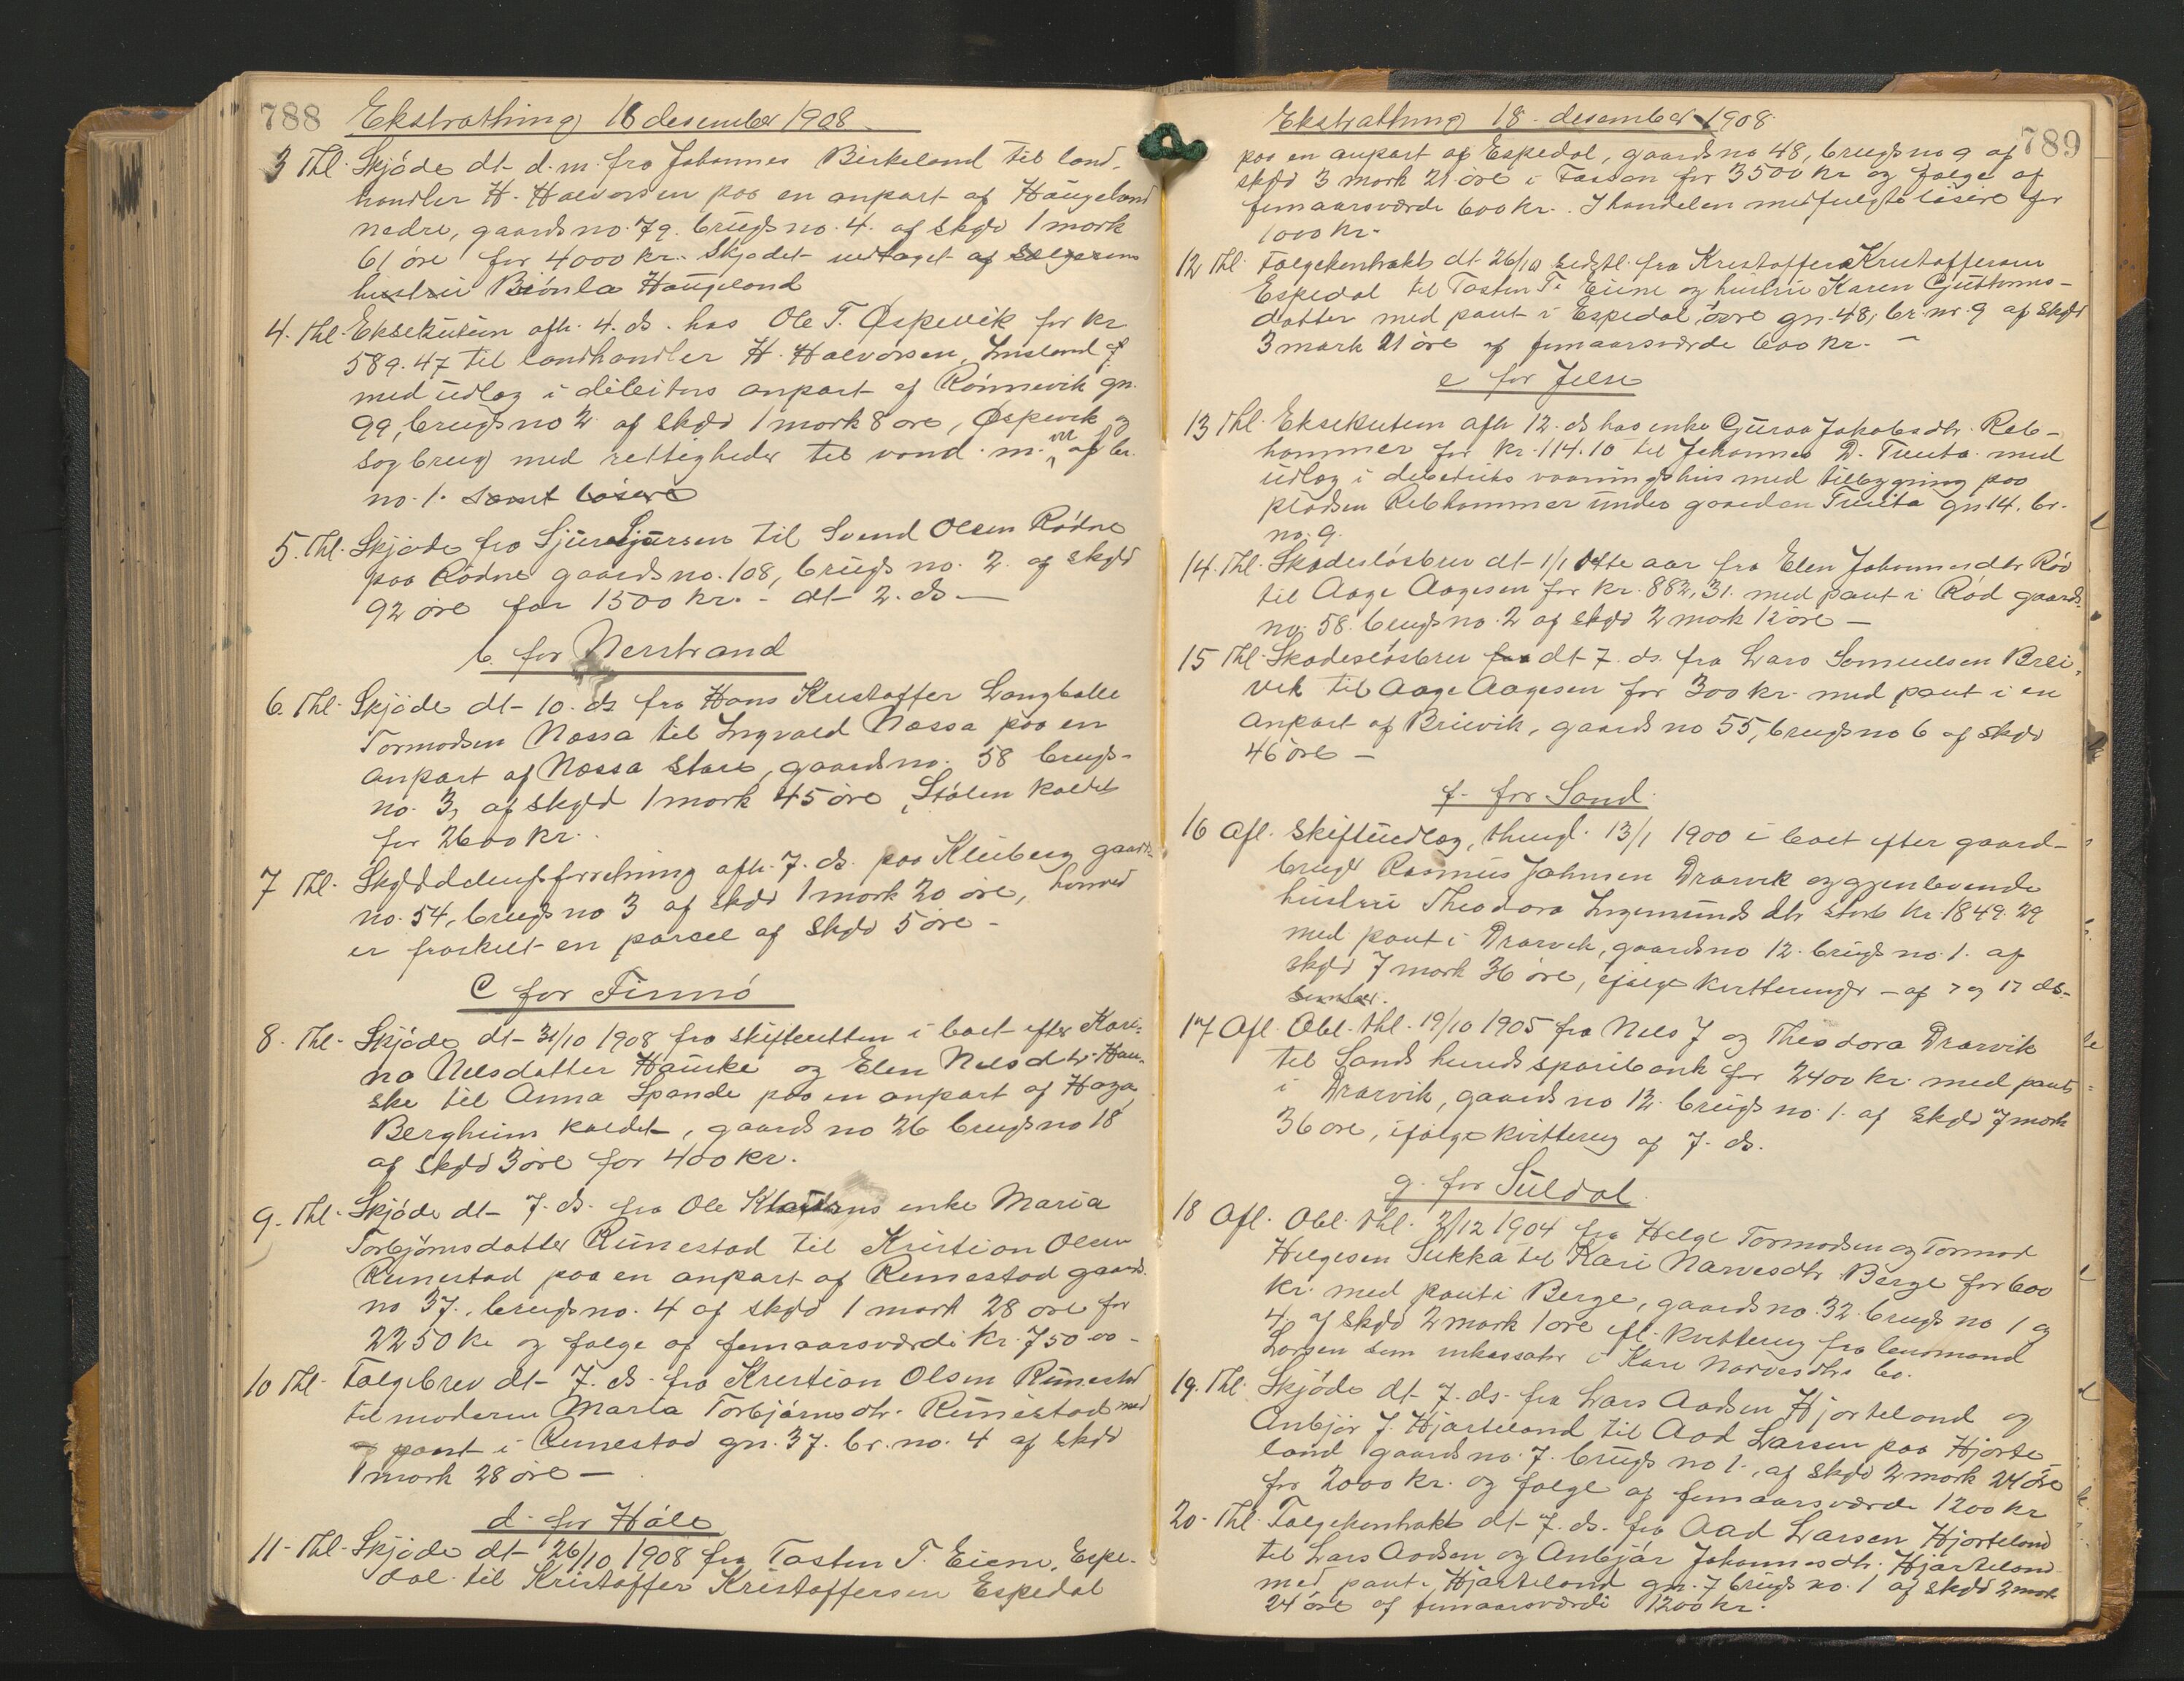 788 Ekstrathing 18 desember 1908
3 Thl. Skjøde dt. d.m. fra Johannes Birkeland til land-
handler H. Halvorsen paa en anpart af Haugeland
nedre, gaardsno. 79. brugsno. 4. af skyld 1 mark
61 øre for 4000 kr. Skjødet vedtaget af selgerens
hustru Haugeland
4. Thl. Eksekution afh. 4. ds. hos Ole T. Øspevik for kr.
589.47 til landhandler H. Halvorsen, Imsland
med udlæg i debitors anpart af Rønnevik gn.
99, brugsno 2 af skyld 1 mark 8 øre, Øspevik og
sagbrug med rettigheder til vand m. m. af br.
no. 1. samt løsøre
5. Thl. Skjøde fra Sjur Sjursen til Svend Olsen Rødne
paa Rødne gaardsno. 108, brugsno. 2. af skyld
92 øre for 1500 kr. - dt. 2. ds. —
b. for Nerstrand
6. Thl. Skjøde dt. 10. ds. fra Hans Kristoffer Langballe
Tormodsen Næssa til Ingvald Næssa paa en
anpart af Næssa store, gaardsno. 58 brugs-
no. 3, af skyld 1 mark 45 øre, Stølen kaldet
for 2600 kr.
7 Thl. Skylddelingsforretning afh. 7. ds. paa Kleiberg gaards
no. 54, brugsno 3 af skyld 1 mark 20 øre, hvorved
er fraskilt en parcel af skyld 5 øre -
C for Finnø
8. Thl. Skjøde dt. 31/10 1908 fra skifteretten i boet efter Kari-
na Nelsdatter Hauske og Elen Nelsdtr. Hau-
ske til Anna Spande paa en anpart af Haga,
Bergheim kaldet, gaardsno 26 brugsno 18
af skyld 3 øre for 400 kr.
9. Thl. Skjøde dt. 7. ds. fra Ole enke Maria
Torbjørnsdatter Runestad til Kristian Olsen
Runestad paa en anpart af Runestad gaards
no 37., brugsno. 4 af skyld 1 mark 28 øre for
2250 kr og følge af femaarsværdi kr. 750.00 -
10 Thl. Følgebrev dt. 7. ds. fra Kristian Olsen Runestad
til moderen Marta Torbjørnsdtr. Runestad med
pant i Runestad gn. 37. br. no. 4 af skyld
1 mark 28 øre —
d. for Høle
11. Thl. Skjøde dt. 26/10 1908 fra Tosten T. Eiene, Espe-
dal til Kristoffer Kristoffersen Espedal
Ekstrathing 18. desember 1908. 789
paa en anpart af Espedal, gaardsno 48, brugsno 9 af
skyld 3 mark 21 øre i Fossan for 3500 kr og følge af
femaarsværde 600 kr. I handelen medfulgte løsøre for
1000 kr.
12 Thl. Følgekontrakt dt. 26/10 sidstl. fra Kristoffer Kristoffersen
Espedal til Tosten T. Eiene og hustru Karen Guttorms-
datter med pant i Espedal øvre gn. 48, br. nr. 9 af skyld
3 mark 21 øre af femaarsværde 600 kr. —
e for Jelse
13 Thl. Eksekution afh 12. ds hos enke Guroa Jakobsdtr. Reb-
hammer for kr. 114.10 til Johannes D. Tveita med
udlæg i debetricis vaaningshus med tilbygning paa
pladsen Rebhammer under gaarden Tveita gn 14. br.
no. 9.
14. Thl. Skadesløsbrev dt. 1/1 dette aar fra Elen Johannesdtr Rød
til Aage Aagesen for kr. 882,31. med pant i Rød gaards-
no. 58. brugsno. 2 af skyld 2 mark 12 øre —
15 Thl. Skadesløsbrev fra dt. 7. ds. fra Lars Samuelsen Brei-
vik til Aage Aagesen for 300 kr. med pant i en
anpart af Breivik, gaardsno 55, brugsno 6 af skyld
46 øre —
f. for Sand.
16 Afl. Skifteudlæg, thingl. 13/1 1900 i boet efter gaard-
bruger Rasmus Johnsen Drarvik og gjenlevende
hustru Theodora Ingemundsdtr stort kr. 1849.29
med pant i Drarvik, gaardsno 12. brugsno. 1. af
skyld 7 mark 36 øre, ifølge kvitteringer — af 7 og 17 ds.

17 Afl. Obl. thl. 19/10 1905 fra Nels J og Theodora Drarvik
til Sands herreds sparibank for 2400 kr. med pant
i Drarvik, gaardsno 12. brugsno. 1. af skyld 7 mark
36 øre, ifølge kvittering af 7. ds.
g. for Suldal
18 Afl. Obl. thl. 2/12 1904 fra Helge Tormodsen og Tormod
Helgesen Sukka til Kari Narvesdtr Berge for 600
kr. med pant i Berge, gaardsno. 32. brugsno 1 og
4. af skyld 2 mark 1 øre ifl. kvittering fra lensmand
Larsen som inkassator i Kari Narvesdtrs bo.
19. Thl. Skjøde dt. 7. ds. fra Lars Aadsen Hjorteland og
Anbjør J. Hjorteland til Aad Larsen paa Hjorte-
land gaardsno. 7. brugsno 1., af skyld 2 mark 24 øre
for 2000 kr. og følge af femaarsværde 1200 kr
20. Thl. Følgekontrakt dt. 7. ds. fra Aad Larsen Hjorteland
til Lars Aadsen og Anbjør Johannesdtr. Hjorteland
med pant i Hjorteland gn. 7 brugsno. 1 af skyld 2 mark
24 øre af femaarsværdi 1200 kr.